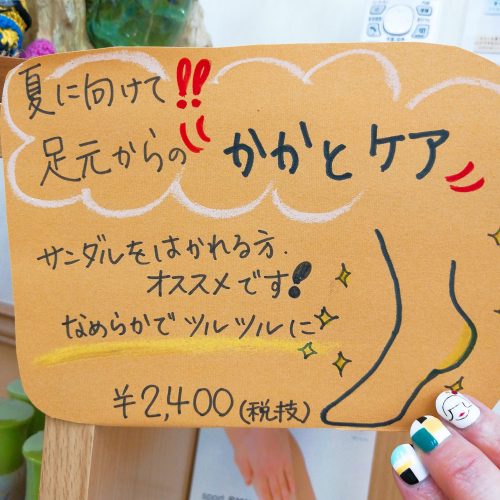 夏に向けて!!
足元からの"かかとケア"
サンダルをはかれる方.
オススメです!
なめらかでツルツルに
¥2,400(税抜)